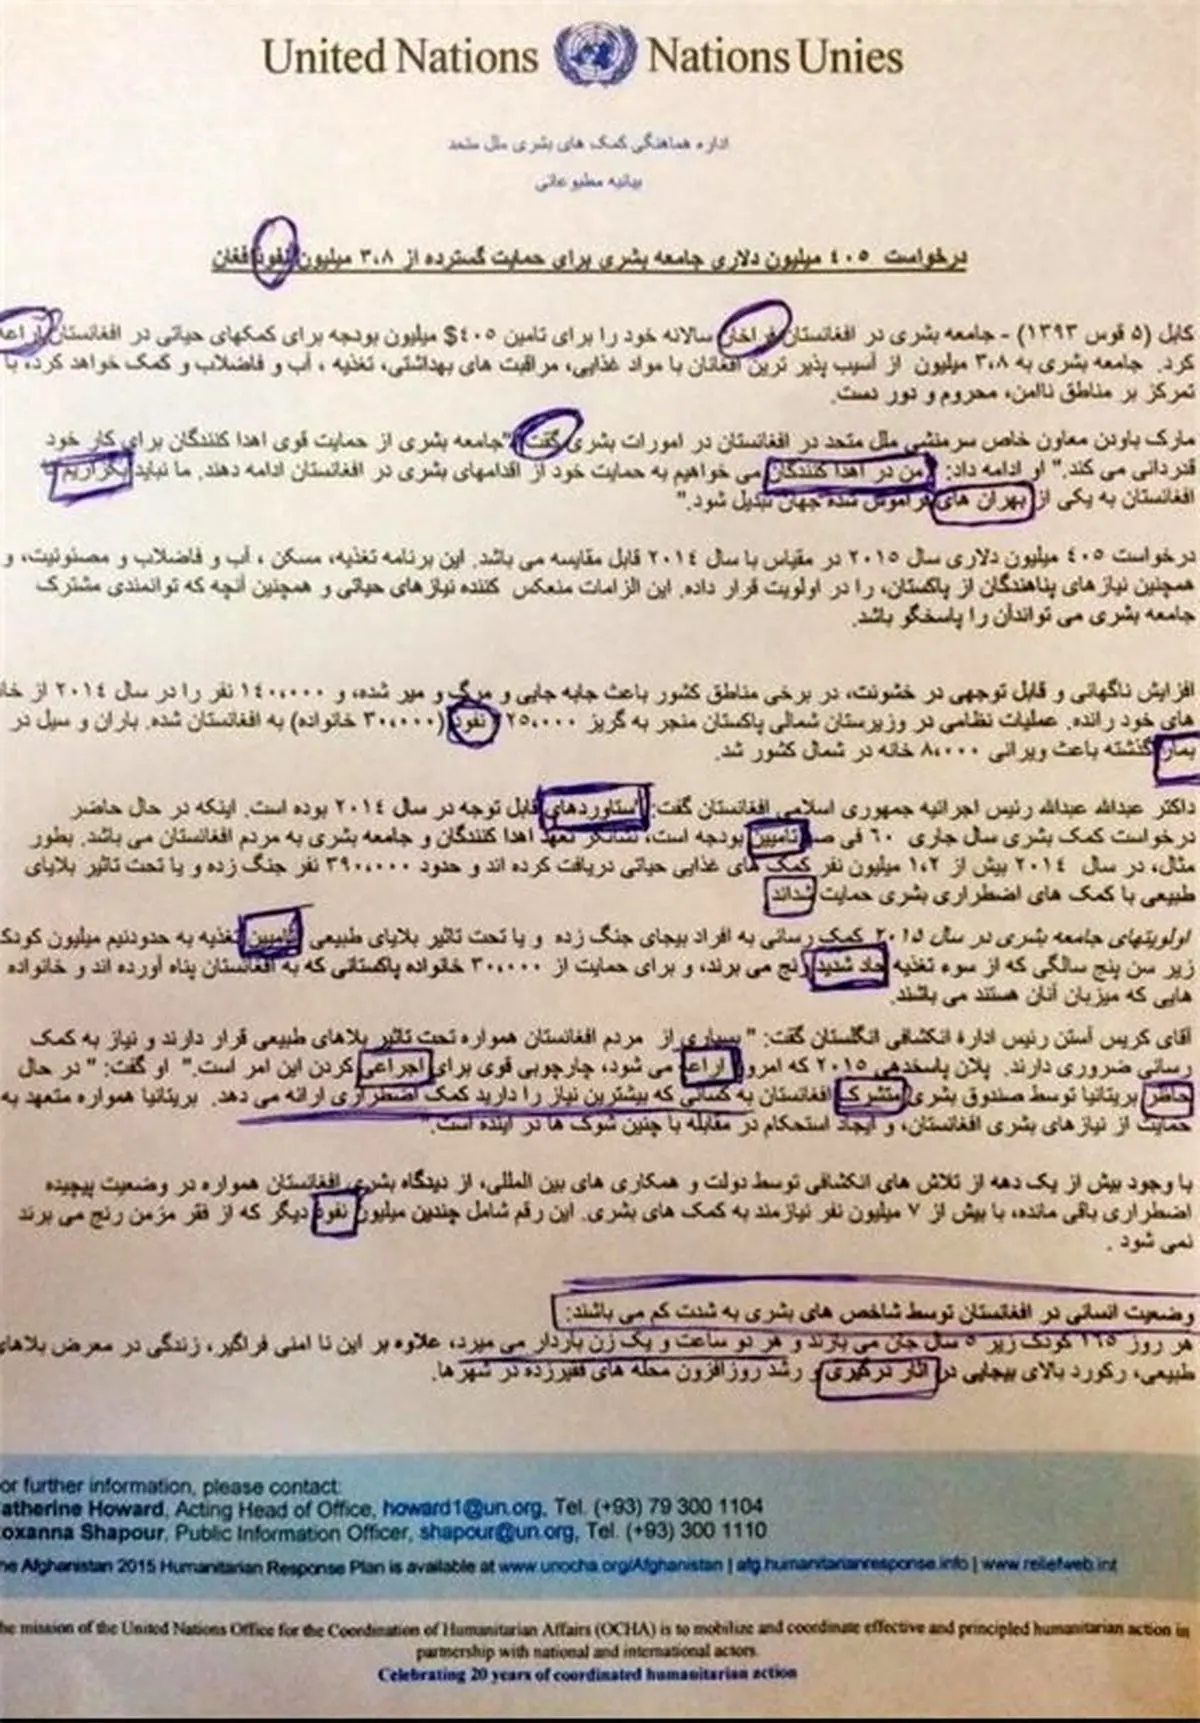 United Nations Nations Unies
اداره هماهنگی کمک های بشری ملل متحد
بیانیه مطبوعاتی
درخواست ٤٠٥ میلیون دلاری جامعه بشری برای حمایت گسترده از ٣،٨ میلیون نفوذ افغان
کابل (٥ قوس ١٣٩٣) - جامعه بشری در افغانستان فراخان سالانه خود را برای تامین ٤٠٥$ میلیون بودجه برای کمکهای حیاتی در افغانستان اراعه
کرد. جامعه بشری به ٣،٨ میلیون از آسیب پذیر ترین افغانان با مواد غذایی، مراقبت های بهداشتی، تغذیه ، آب و فاضلاب و کمک خواهد کرد، با
تمرکز بر مناطق ناامن، محروم و دور دست.
مارک باودن معاون خاص سرمنشی ملل متحد در افغانستان در امورات بشری گفت "جامعه بشری از حمایت قوی اهدا کنندگان برای کار خود
قدردانی می کند." او ادامه داد: "من در اهدا کنندگان می خواهیم به حمایت خود از اقدامهای بشری در افغانستان ادامه دهند. ما نباید بگزاریم تا
افغانستان به یکی از بهران های فراموش شده جهان تبدیل شود."
درخواست ٤٠٥ میلیون دلاری سال ٢٠١٥ در مقیاس با سال ٢٠١٤ قابل مقایسه می باشد. این برنامه تغذیه، مسکن ، آب و فاضلاب و مصئونیت، و
همچنین نیازهای پناهندگان از پاکستان، را در اولویت قرار داده. این الزامات منعکس کننده نیازهای حیاتی و همچنین آنچه که توانمندی مشترک
جامعه بشری می تواندآن را پاسخگو باشد.
افزایش ناگهانی و قابل توجهی در خشونت، در برخی مناطق کشور باعث جابه جایی و مرگ و میر شده، و ١٤٠،٠٠٠ نفر را در سال ٢٠١٤ از خانه
های خود رانده. عملیات نظامی در وزیرستان شمالی پاکستان منجر به گریز ٢٢٥،٠٠٠ نفوذ (٣٠،٠٠٠ خانواده) به افغانستان شده. باران و سیل در
بمار گذشته باعث ویرانی ٨،٠٠٠ خانه در شمال کشور شد.
داکتر عبدالله عبدالله رئیس اجرائیه جمهوری اسلامی افغانستان گفت: "ستاوردهای قابل توجه در سال ٢٠١٤ بوده است. اینکه در حال حاضر
درخواست کمک بشری سال جاری ٦٠ فی صد تامیین بودجه است، نشانگر تعهد اهدا کنندگان و جامعه بشری به مردم افغانستان می باشد. بطور
مثال، در سال ٢٠١٤ بیش از ١،٢ میلیون نفر کمک های غذایی حیاتی دریافت کرده اند و حدود ٣٩٠،٠٠٠ نفر جنگ زده و یا تحت تاثیر بلایای
طبیعی با کمک های اضطراری بشری حمایت شداند
اولویتهای جامعه بشری در سال ٢٠١٥ کمک رسانی به افراد بیجای جنگ زده و یا تحت تاثیر بلایای طبیعی تامیین تغذیه به حدودنیم میلیون کودک
زیر سن پنج سالگی که از سوء تغذیه حاد شدید رنج می برند، و برای حمایت از ٣٠،٠٠٠ خانواده پاکستانی که به افغانستان پناه آورده اند و خانواده
هایی که میزبان آنان هستند می باشند.
آقای کریس آستن رئیس ادارۀ انکشافی انگلستان گفت: " بسیاری از مردم افغانستان همواره تحت تاثیر بلاهای طبیعی قرار دارند و نیاز به کمک
رسانی ضروری دارند. پلان پاسخدهی ٢٠١٥ که امروز اراعه می شود، چارچوبی قوی برای اجراعی کردن این امر است." او گفت: " در حال
حاظر بریتانیا توسط صندوق بشری متشرک افغانستان به کسانی که بیشترین نیاز را دارید کمک اضطراری ارائه می دهد. بریتانیا همواره متعهد به
حمایت از نیازهای بشری افغانستان، و ایجاد استحکام در مقابله با چنین شوک ها در آینده است."
با وجود بیش از یک دهه از تلاش های انکشافی توسط دولت و همکاری های بین المللی، از دیدگاه بشری افغانستان همواره در وضعیت پیچیده
اضطراری باقی مانده، با بیش از ٧ میلیون نفر نیازمند به کمک های بشری. این رقم شامل چندین میلیون نفوذ دیگر که از فقر مزمن رنج می برند
نمی شود .
وضعیت انسانی در افغانستان توسط شاخص های بشری به شدت کم می باشند:
هر روز ١٦٥ کودک زیر ٥ سال جان می بازند و هر دو ساعت و یک زن باردار می میرد، علاوه بر این نا امنی فراگیر، زندگی در معرض بلاهای
طبیعی، رکورد بالای بیجایی در اثار درگیری و رشد روزافزون محله های فقیرزده در شهرها.
or further information, please contact:
atherine Howard, Acting Head of Office, howard1@un.org, Tel. (+93) 79 300 1104
oxanna Shapour, Public Information Officer, shapour@un.org, Tel. (+93) 300 1110
he Afghanistan 2015 Humanitarian Response Plan is available at www.unocha.org/Afghanistan | afg.humanitarianresponse.info | www.reliefweb.int
he mission of the United Nations Office for the Coordination of Humanitarian Affairs (OCHA) is to mobilize and coordinate effective and principled humanitarian action in
partnership with national and international actors.
Celebrating 20 years of coordinated humanitarian action